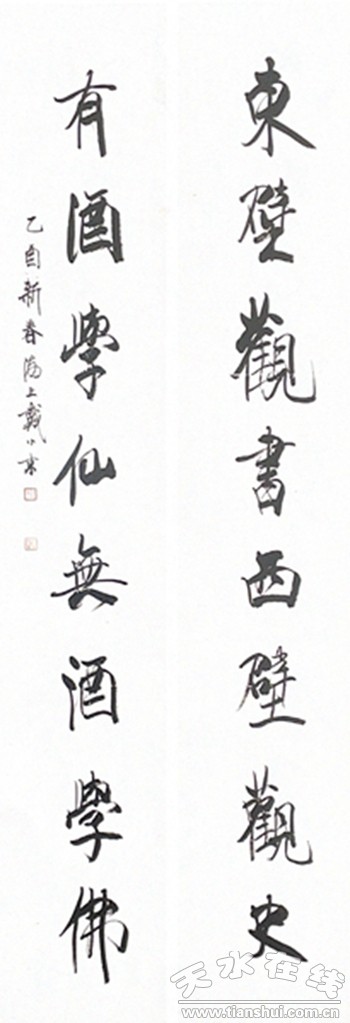 東壁觀書西壁觀史
有酒學仙無酒學佛
乙酉新春海上戴小京
天水在线
www.tianshui.com.cn